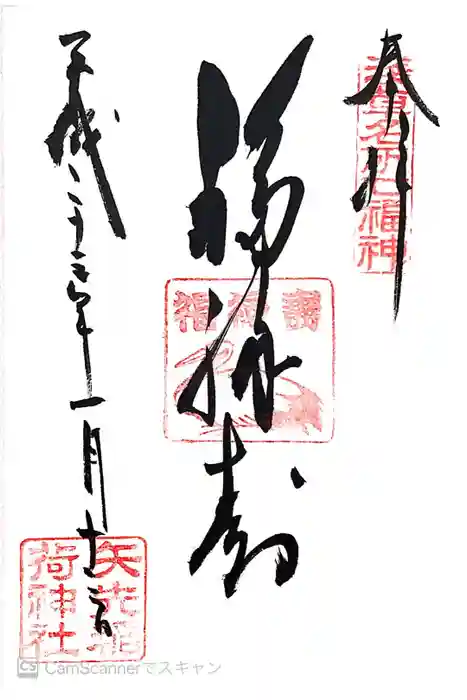 奉拝
浅草名所七福神
福禄寿
壽禄福
平成二十三年一月十日
矢先稲
荷神社
CS CamScannerでスキャン